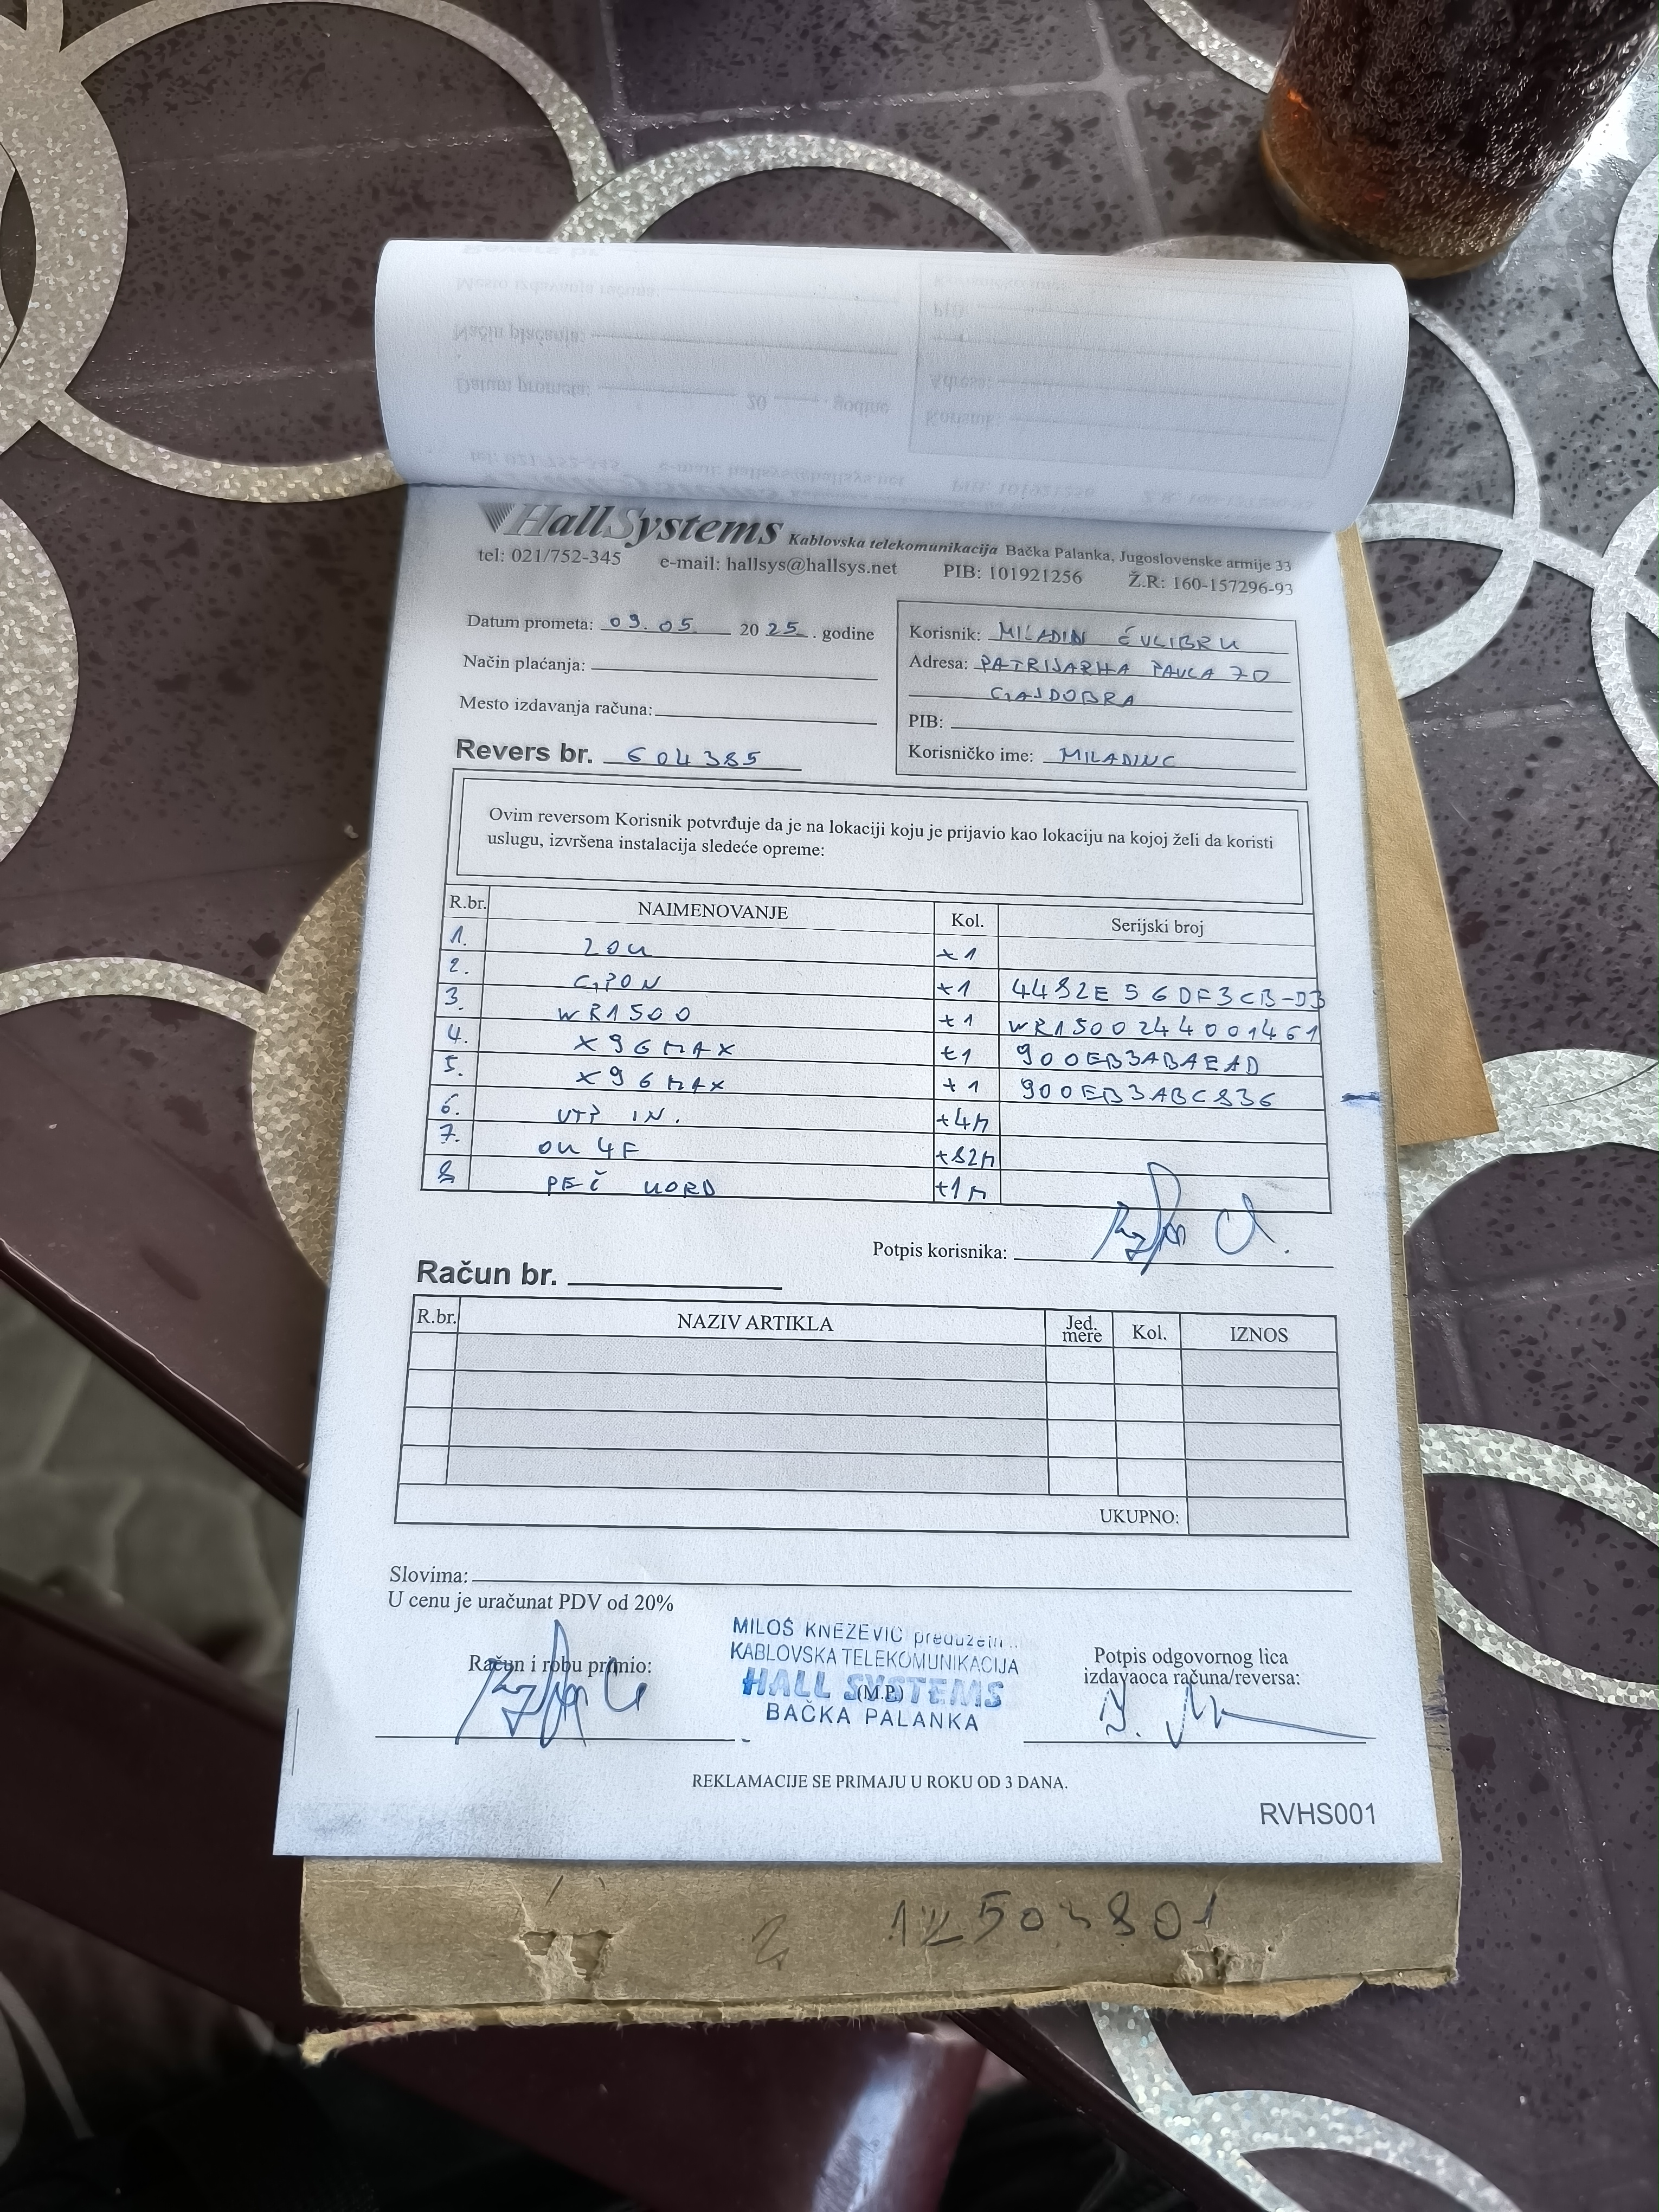 HallSystems Kablovska telekomunikacija Bačka Palanka, Jugoslovenske armije 33
tel: 021/752-345 e-mail: hallsys@hallsys.net PIB: 101921256 Ž.R: 160-157296-93
Datum prometa: 09.05 2025. godine
Način plaćanja:
Mesto izdavanja računa:
Revers br. 604385
Korisnik: MILADIN ĆULIBRK
Adresa: PATRIJARHA PAVLA 70
GAJDOBRA
PIB:
Korisničko ime: MILADINC
Ovim reversom Korisnik potvrđuje da je na lokaciji koju je prijavio kao lokaciju na kojoj želi da koristi
uslugu, izvršena instalacija sledeće opreme:
R.br. NAIMENOVANJE Kol. Serijski broj
1. ZOK +1
2. GPON +1 4492E56DF3CB-D3
3. WR1500 +1 WR1500244001461
4. X96MAX +1 900EB3ABAEAD
5. X96MAX +1 900EB3ABC836
6. UTP IN. +4M
7. OK 4F +82M
8 PEČ KORD +1M
Potpis korisnika:
Račun br.
R.br. NAZIV ARTIKLA Jed. mere Kol. IZNOS
UKUPNO:
Slovima:
U cenu je uračunat PDV od 20%
MILOŠ KNEŽEVIĆ preduzetn
KABLOVSKA TELEKOMUNIKACIJA
HALL SYSTEMS
(M.P.)
BAČKA PALANKA
Račun i robu primio:
Potpis odgovornog lica
izdavaoca računa/reversa:
REKLAMACIJE SE PRIMAJU U ROKU OD 3 DANA.
RVHS001